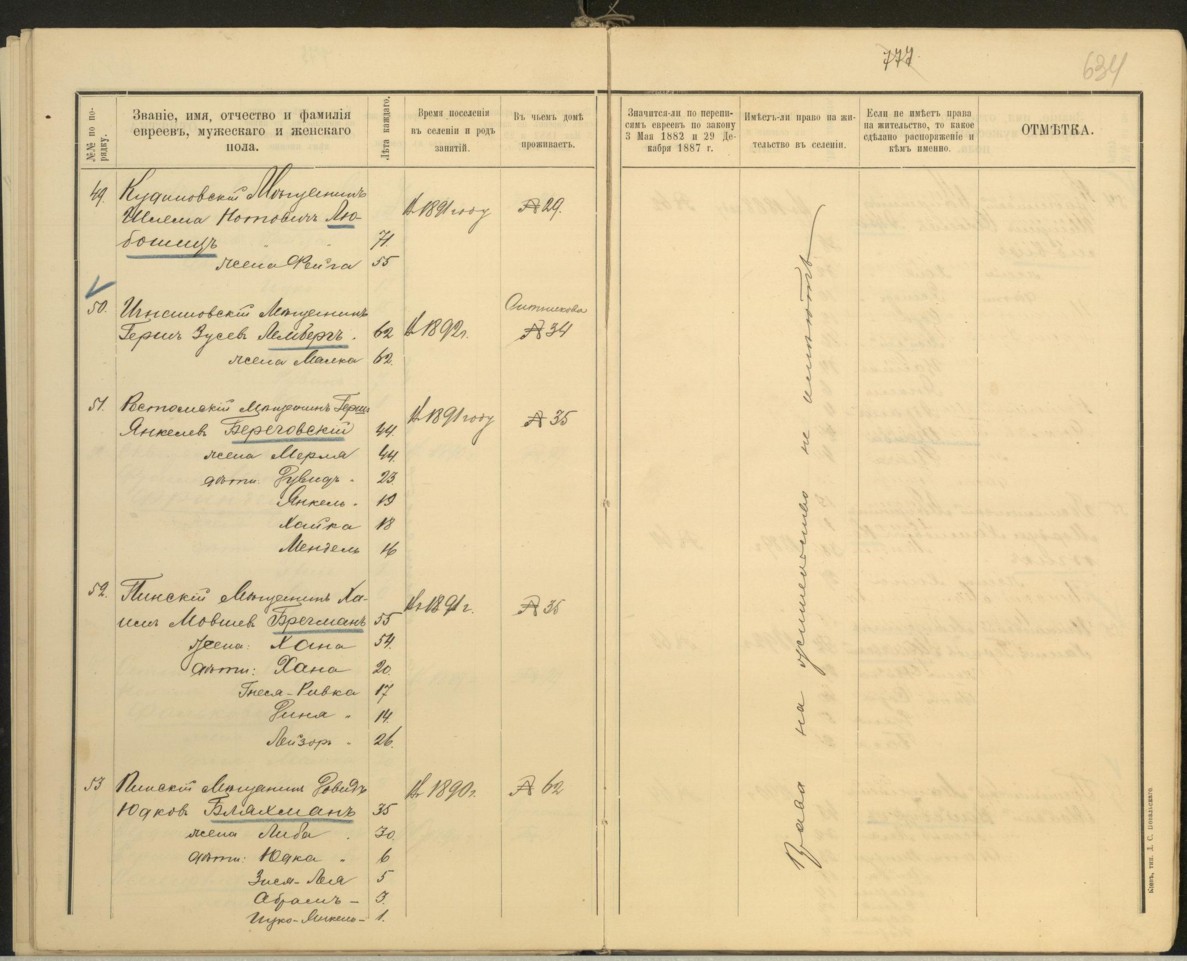 777.
634
№№ по по-
рядку.
Званіе, имя, отчество и фамилія
евреевъ, мужескаго и женскаго
пола.
Лѣта каждаго.
Время поселенія
въ селеніи и родъ
занятій.
Въ чьемъ домѣ
проживаетъ.
Значится-ли по перепи-
сямъ евреевъ по закону
3 Мая 1882 и 29 Де-
кабря 1887 г.
Имѣетъ-ли право на жи-
тельство въ селеніи.
Если не имѣетъ права
на жительство, то какое
сдѣлано распоряженіе и
кѣмъ именно.
ОТМѢТКА.
49. Мѣщанинъ
Шлема Нотовичъ Лю-
бошицъ 71
въ 1891 году № 29.
жена Фейга 55
50. Мѣщанинъ
Гершъ Зусевъ Лембергъ. 62 въ 1892 г. № 34
жена Малка 62.
51. Мѣщанинъ Гершъ
Янкелевъ Береговскій 44. въ 1891 году № 35
жена Мерля 44
дѣти: Дувидъ - 23
Янкель - 19
Хайка 18
Мендель 16
52. Пинскій Мѣщанинъ Ха-
имъ Мовшевъ Брегманъ 55 въ 1891 г. № 35
Жена: Хана 54.
дѣти: Хана 20.
Гнеся-Ривка 17
Диня - 14.
Лейзоръ - 26.
53 Пинскій Мѣщанинъ Довидъ
Юдковъ Бляхманъ 35 въ 1890 г. № 62
жена Либа 30.
дѣти: Юдка - 6
Зися-Лея 5
Абрамъ - 3.
1.
Права на жительство не имѣютъ
Кіевъ, тип. Д. С. Повальскаго.